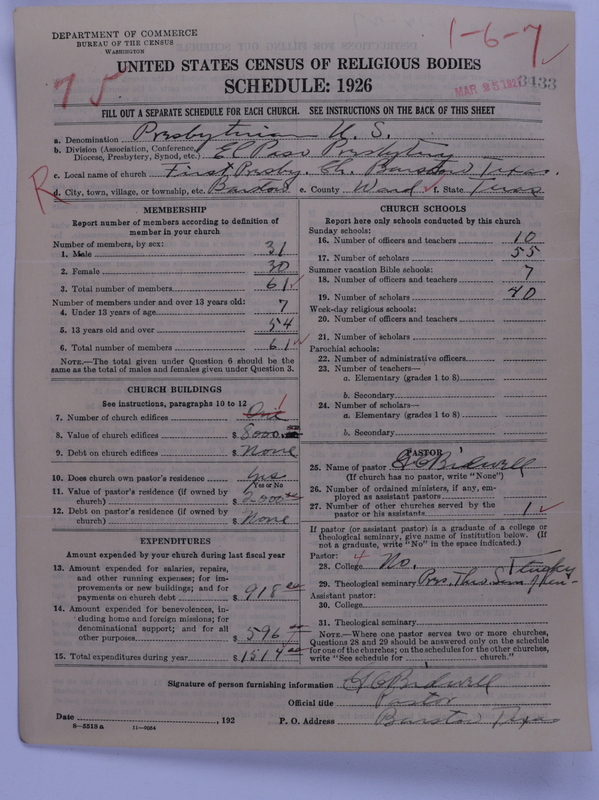 DEPARTMENT OF COMMERCE
BUREAU OF THE CENSUS
WASHINGTON
1-6-7
75
UNITED STATES CENSUS OF RELIGIOUS BODIES
SCHEDULE: 1926
MAR 25 192
3433
FILL OUT A SEPARATE SCHEDULE FOR EACH CHURCH. SEE INSTRUCTIONS ON THE BACK OF THIS SHEET
a. Denomination Presbyterian U. S.
b. Division (Association, Conference, Diocese, Presbytery, Synod, etc.) El Paso Presbytery
c. Local name of church First Presby. Ch. Barstow Texas.
R
d. City, town, village, or township, etc. Barstow e. County Ward f. State Texas
MEMBERSHIP
Report number of members according to definition of
member in your church
Number of members, by sex:
1. Male 31
2. Female 30
3. Total number of members 61
Number of members under and over 13 years old:
4. Under 13 years of age 7
5. 13 years old and over 54
6. Total number of members 61
NOTE.—The total given under Question 6 should be
same as the total of males and females given under Question 3.
CHURCH BUILDINGS
See instructions, paragraphs 10 to 12
7. Number of church edifices One 1
8. Value of church edifices $ 8000
9. Debt on church edifices $ None
10. Does church own pastor's residence yes
Yes or No
11. Value of pastor's residence (if owned by
church) $ 2000
12. Debt on pastor's residence (if owned by
church) $ None
EXPENDITURES
Amount expended by your church during last fiscal year
13. Amount expended for salaries, repairs,
and other running expenses; for im-
provements or new buildings; and for
payments on church debt $ 918
14. Amount expended for benevolences, in-
cluding home and foreign missions; for
denominational support; and for all
other purposes $ 596
15. Total expenditures during year $ 1514
CHURCH SCHOOLS
Report here only schools conducted by this church
Sunday schools:
16. Number of officers and teachers 10
17. Number of scholars 55
Summer vacation Bible schools:
18. Number of officers and teachers 7
19. Number of scholars 40
Week-day religious schools:
20. Number of officers and teachers
21. Number of scholars
Parochial schools:
22. Number of administrative officers
23. Number of teachers—
a. Elementary (grades 1 to 8)
b. Secondary
24. Number of scholars—
a. Elementary (grades 1 to 8)
b. Secondary
PASTOR
25. Name of pastor Bidwell
(If church has no pastor, write "None")
26. Number of ordained ministers, if any, em-
ployed as assistant pastors
27. Number of other churches served by the
pastor or his assistants 1
If pastor (or assistant pastor) is a graduate of a college or
theological seminary, give name of institution below. (If
not a graduate, write "No" in the space indicated.)
Pastor: 4
28. College No.
29. Theological seminary Pres. Theo Sem of Ken-
tucky
Assistant pastor:
30. College
31. Theological seminary
NOTE.—Where one pastor serves two or more churches,
Questions 28 and 29 should be answered only on the schedule
for one of the churches; on the schedules for the other churches,
write "See schedule for church."
Signature of person furnishing information Bidwell
Official title Pastor
Date , 192
P. O. Address Barstow Texas
8—5518 a 11—9054